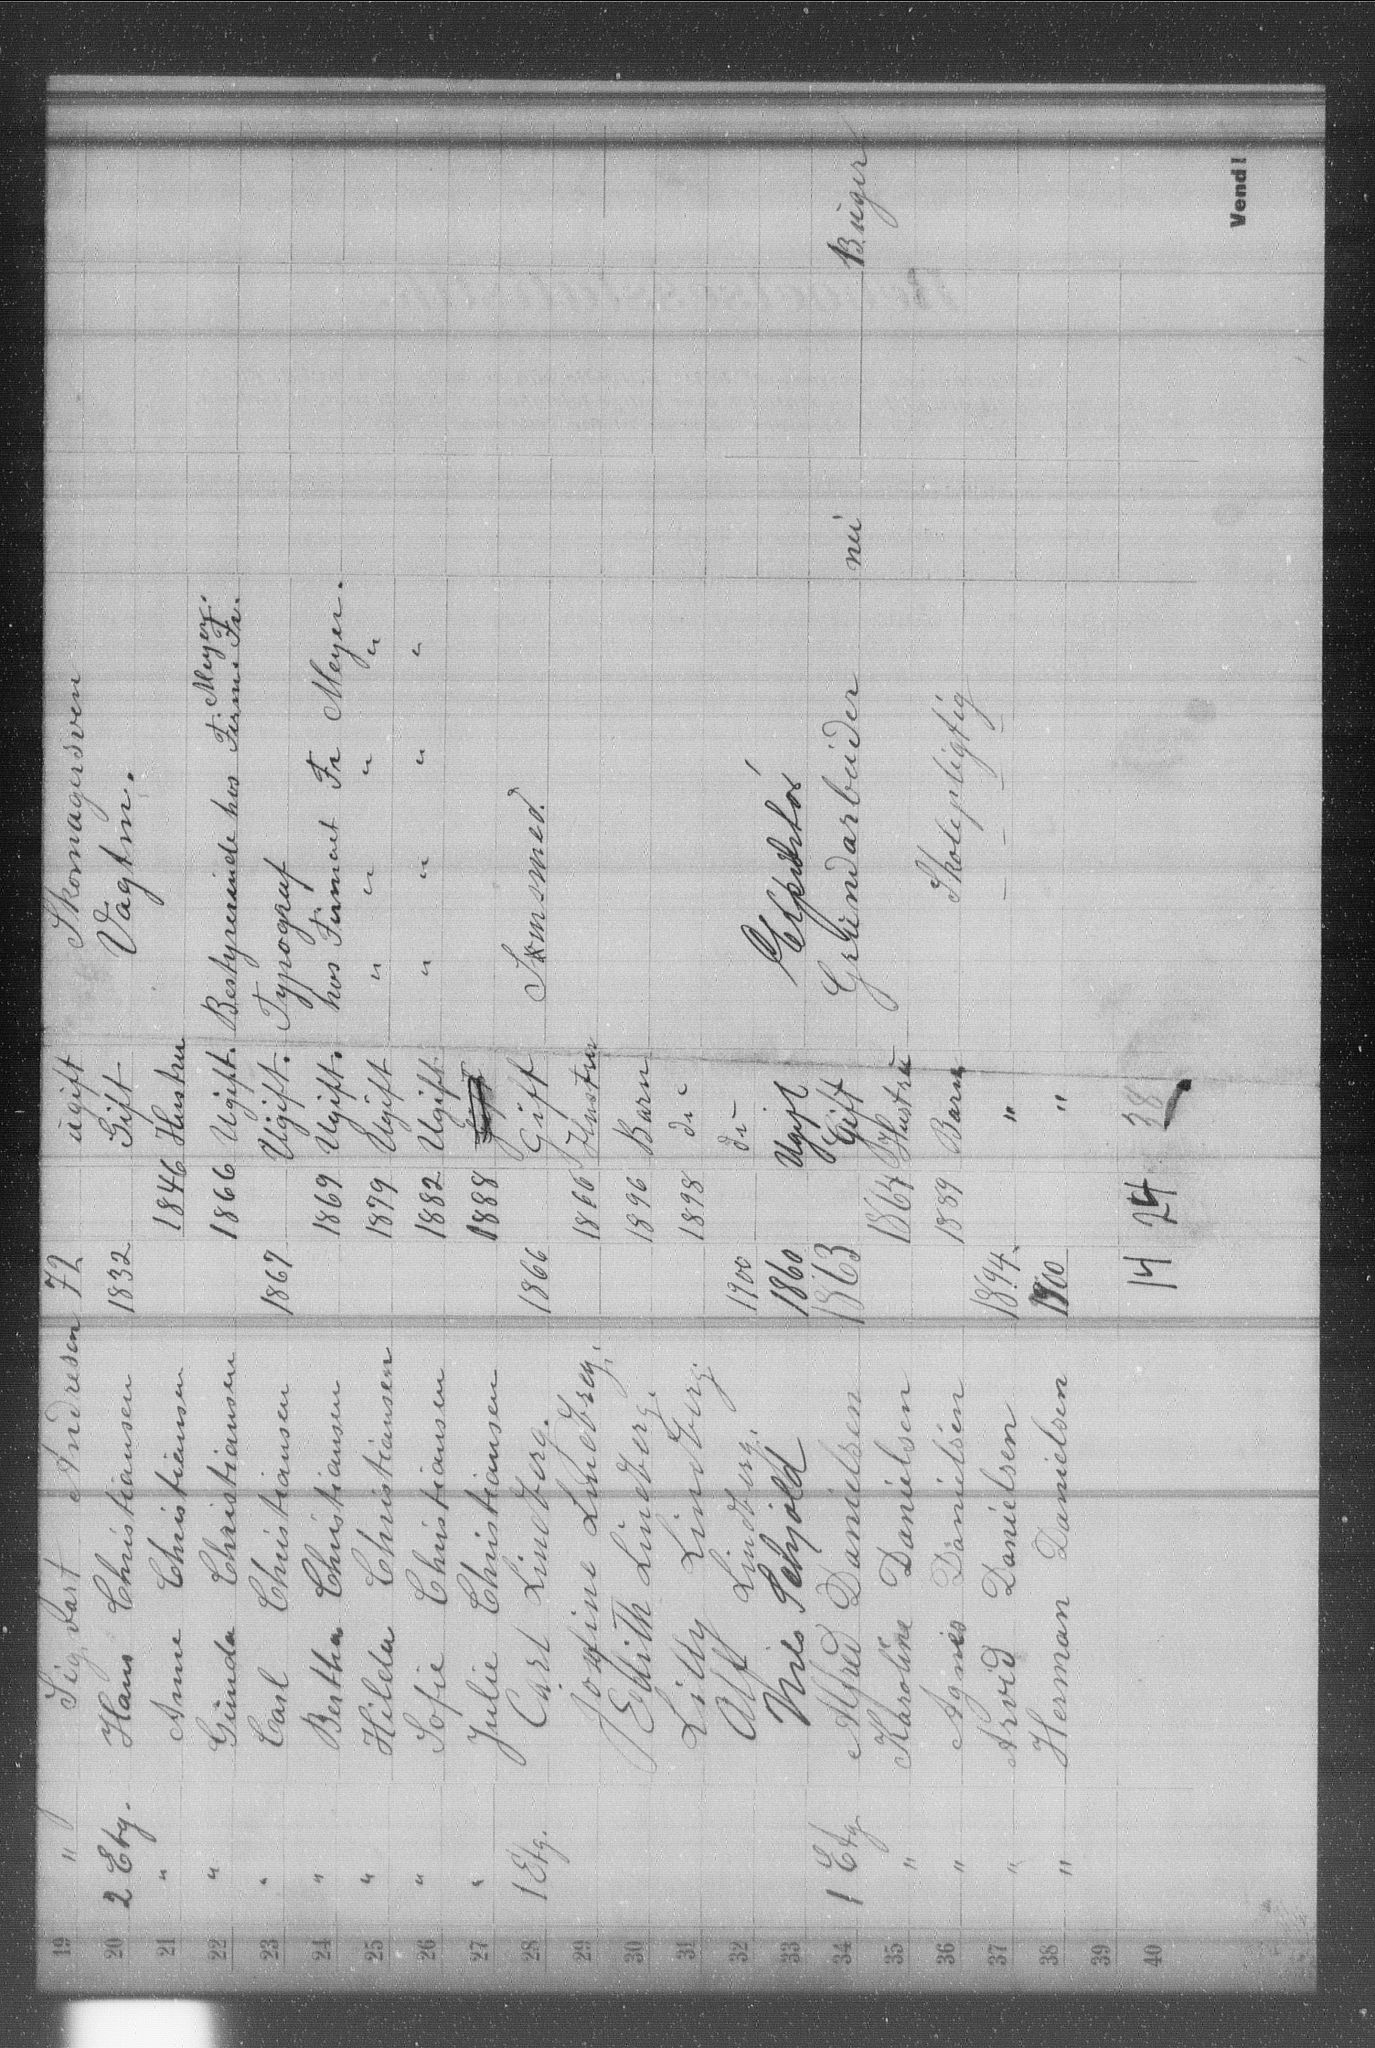 19 " Sigvart Andresen 72 ugift Skomagersven
20 2 Etg. Hans Christiansen 1832 Gift Vagtm.
21 " Anne Christiansen 1846 Hustru
22 " Gunda Christiansen 1866 Ugift. Bestyrerinde hos Firma Fr. Meyer.
23 " Carl Christiansen 1867 Ugift. Typograf
24 " Bertha Christiansen 1869 Ugift. hos Firmaet Fr Meyer.
25 " Hilda Christiansen 1879 Ugift " " " "
26 " Sofie Christiansen 1882 Ugift " " " "
27 " Julie Christiansen 1888
28 1 Etg. Carl Lindberg. 1866 Gift
29 Josefine Lindberg. 1866 Hustru
30 Edith Lindberg. 1896 Barn
31 Lilly Lindberg. 1898 do
32 Alf Lindberg. 1900 do
33 Nils Schjöld 1860 Ugift
34 1 Etg Alfred Danielsen 1863 Gift nei
35 " Karoline Danielsen 1864 Hustru
36 " Agnes Danielsen 1889 Barn Skolepligtig
37 " Arvid Danielsen 1894 " — — —
38 " Herman Danielsen 1900 "
39
40 14 24 38
Vend!